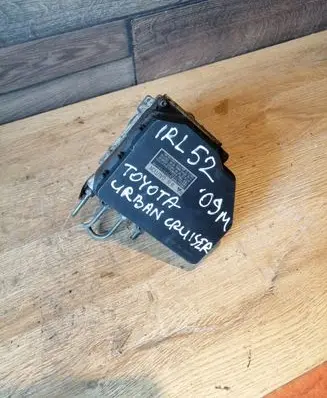 IRL52
'09M
TOYOTA
URBAN CRUISER